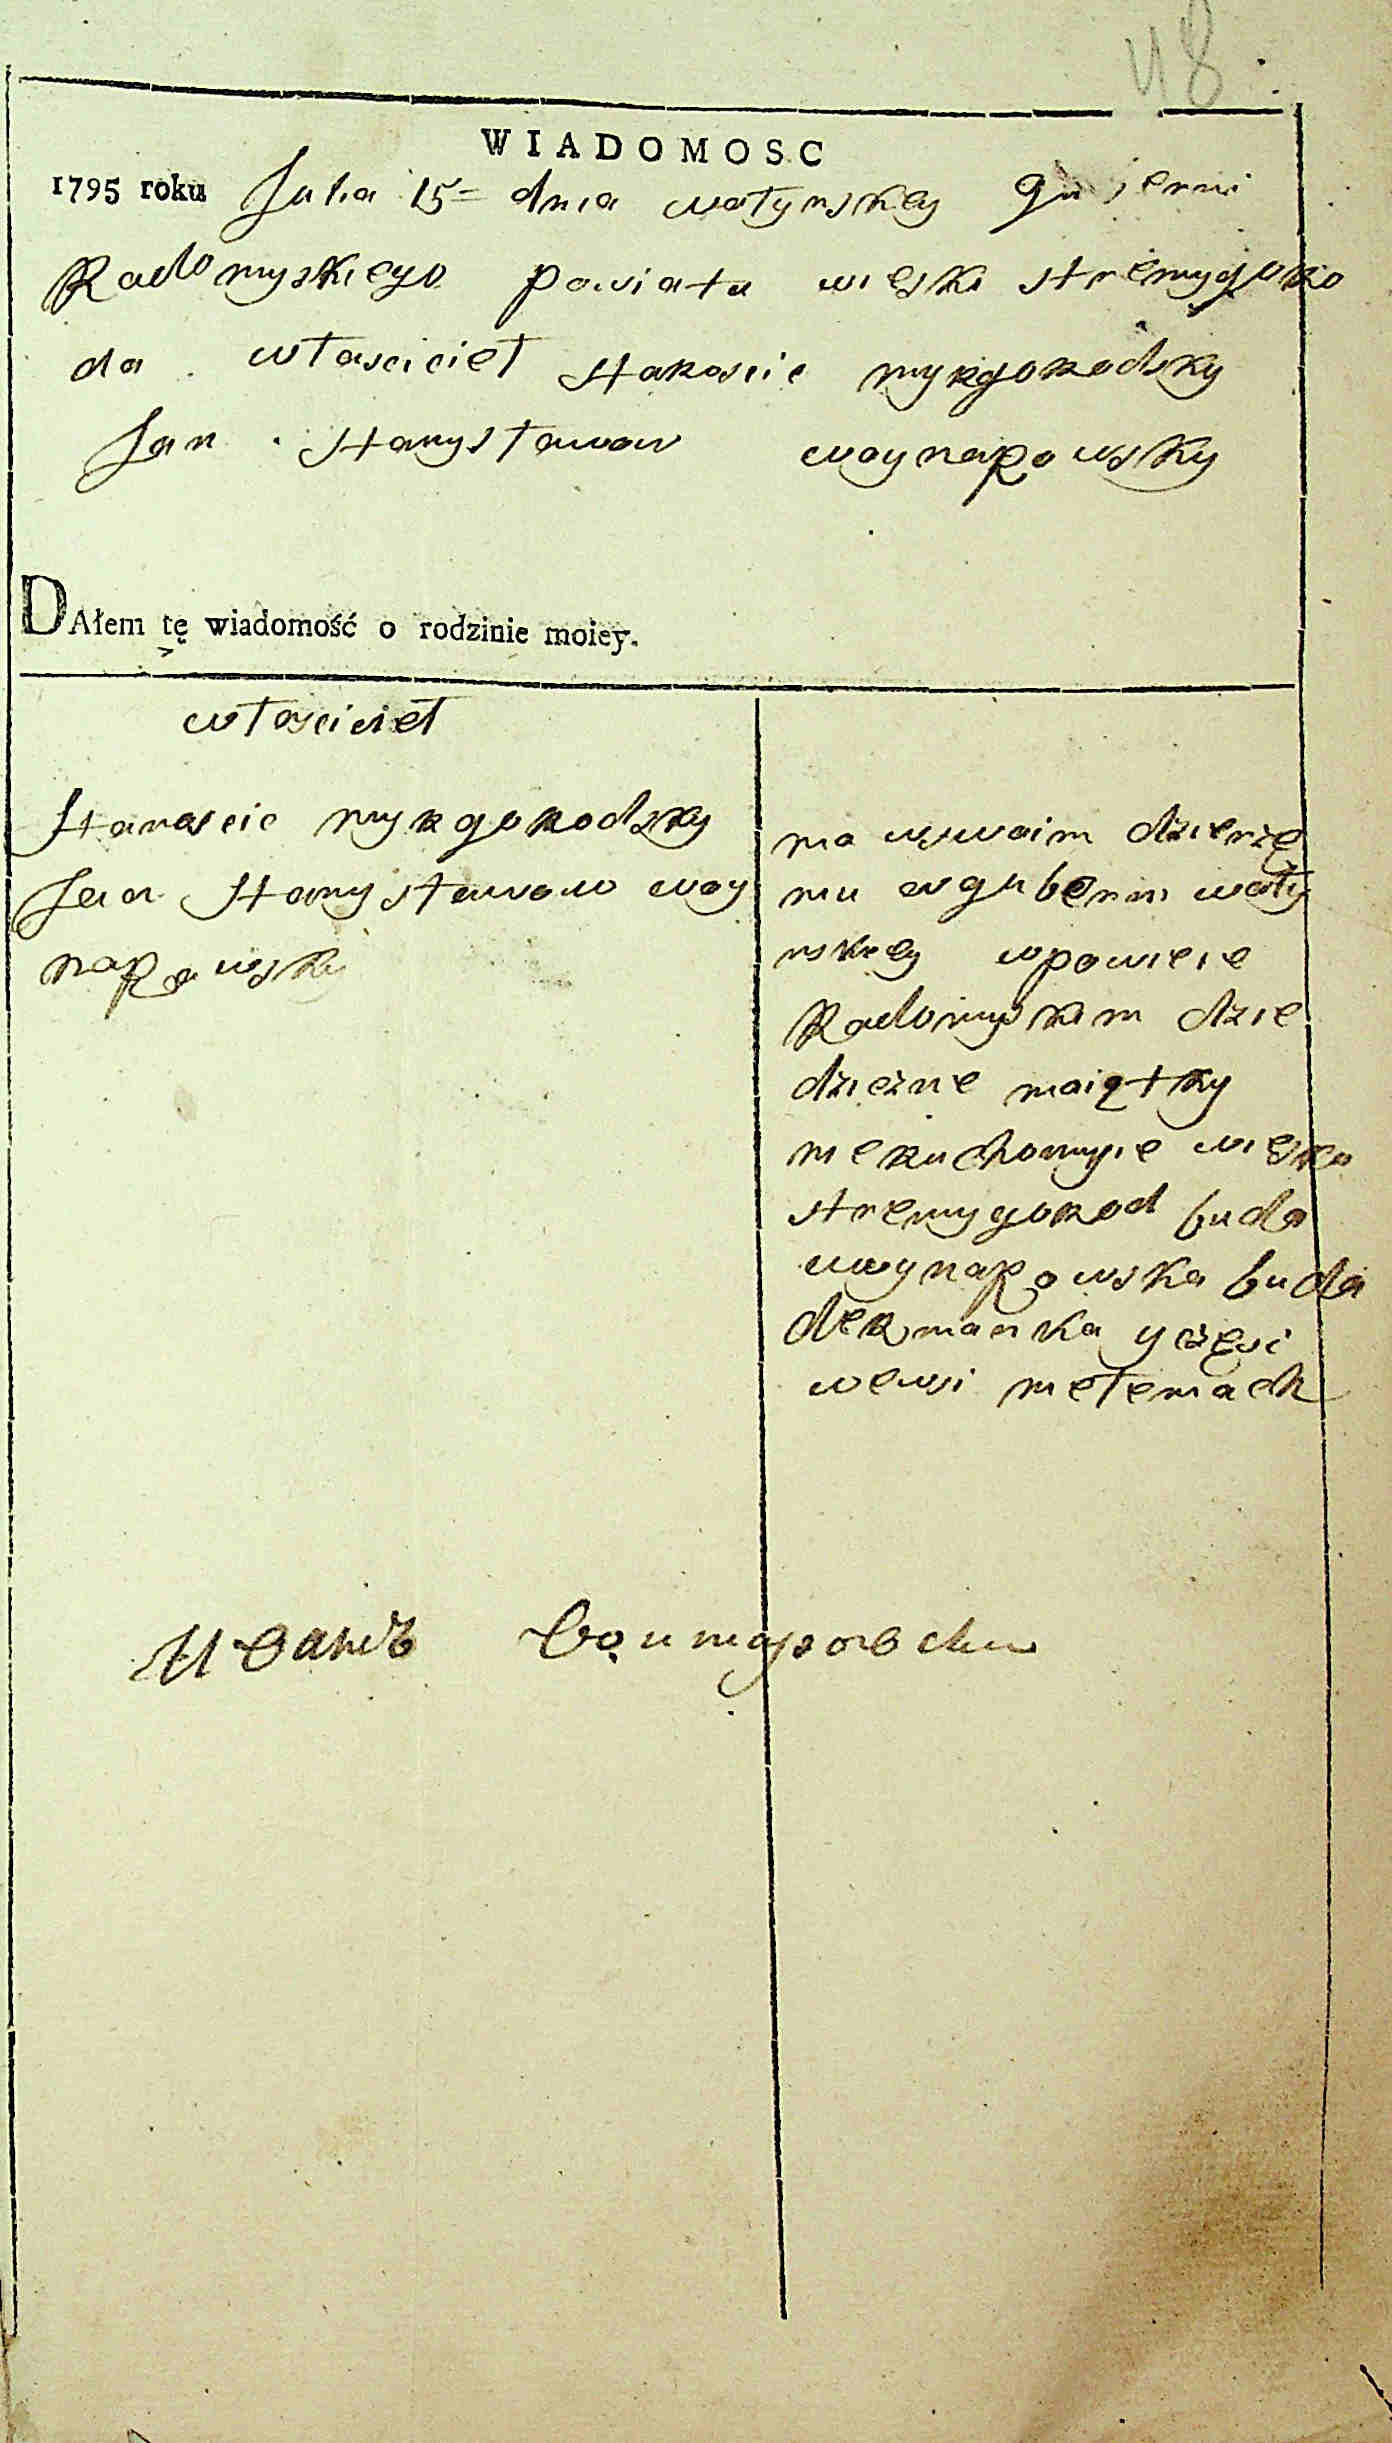 48
WIADOMOSC
1795 roku Julia 15= dnia wołynskey gubernii
Radomyskiego powiatu wieski stremygoro
da właściciel staroscic myrgorodsky
Jan Stanysławow woynarowsky
DAłem tę wiadomość o rodzinie moiey.
właściciel
staroscic myrgorodsky
Jan Stanysławow woy
narowsky
ma wswoim dzierże
niu wguberni woły
nskiey wpowiecie
Radomyskim dzie
dziczne maiątky
neruchomyie wieska
stremygorod buda
woynarowska buda
dermanka y część
wewsi meleniach
Иванъ Войнаровски